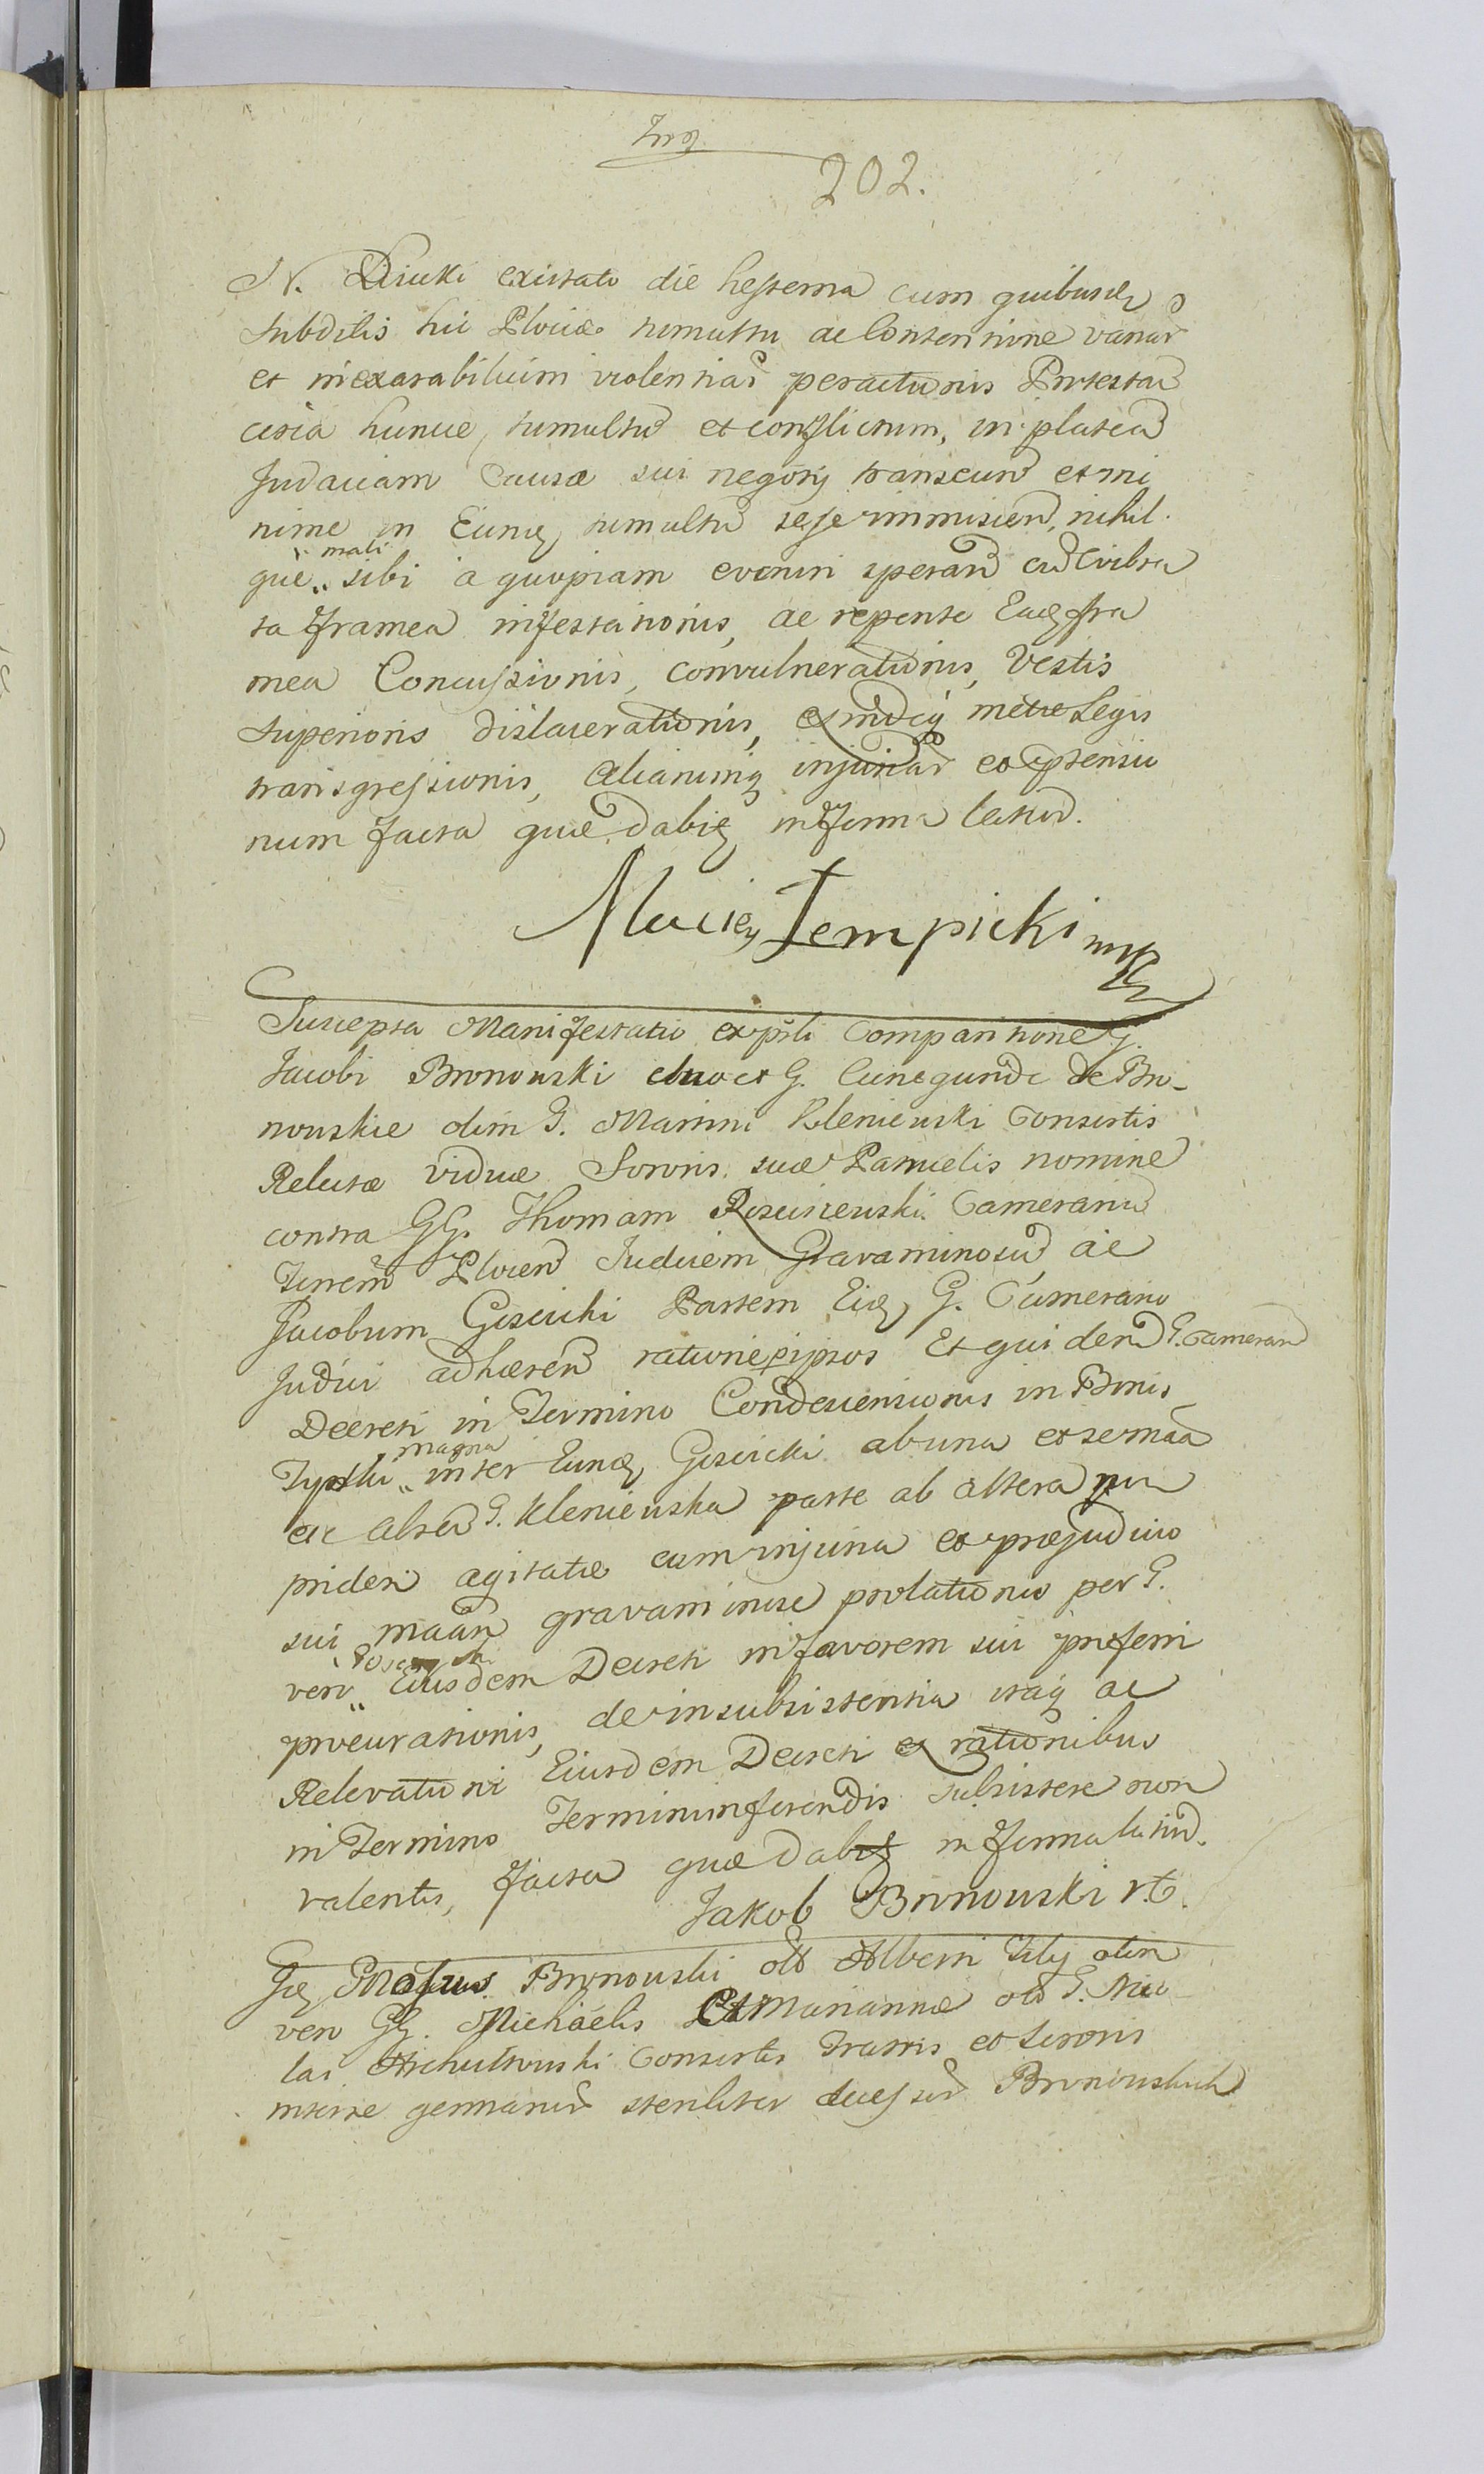 202.
N. Kiuki excitato die hesterna cum quibusq
Subditis hic Plociae tumultu ac Contentione variar
et inexarabilium violentiar peractionis Protestar
circa hunce tumultu et conflictum, in plateã
Judaicam Causa sui negotÿ transeun et mi
nime in Eunq tumultu sese immisien, nihil
mali
que sibi a quopiam eveniri speran cu vibra
ta framea infestationis, ac repente Eaq fra
mea Concussionis, convulnerationis, Vestis
Superioris dislacerationis, Legis
transgressionis, aliarumq injuriar ex ptensio
num facta quae dabit in forma latiori.
Maciey Łempicki mp
Suscepta Manifestatio ex psti Comparitione G.
Jacobi Bronowski suo et G. Cunegunde de Bro-
nowskie olim G. Martini Kleniewski Consortis
Relictae viduae Sororis suae Patruelis nomine
contra GG. Thomam Rosciszewski Camerariu
Trrem Plocen Judicem Gravaminosu ac
Jacobum Gosciicki Partem Eiq G. Camerario
Judici adhaeren ratione ipsos Et quidem G. Cameran
Decreti in Termino Condescensionis in Bonis
magna
inter Eunq Gosciicki ab una et
ac altera G. Kleniewska parte ab altera
pridem agitatae cum injuria et praejudicio
sui gravaminose prolationis per G.
vero Eiusdem Decreti in favorem sui proferri
procurationis, de insubsistentia itaq ac
Relevatione Eiusdem Decreti ex rationibus
in Termino Termini inferendis subsistere non
valentis, facta quae dabit in forma latiori.
Jakob Bronowski
Bronowski olim Alberti Filÿ olim
vero GG. Michaëlis Et Mariannae olim G. Nico
lai Consortis Fratris et Sororis
interse germanor steriliter decessor Bronowskich